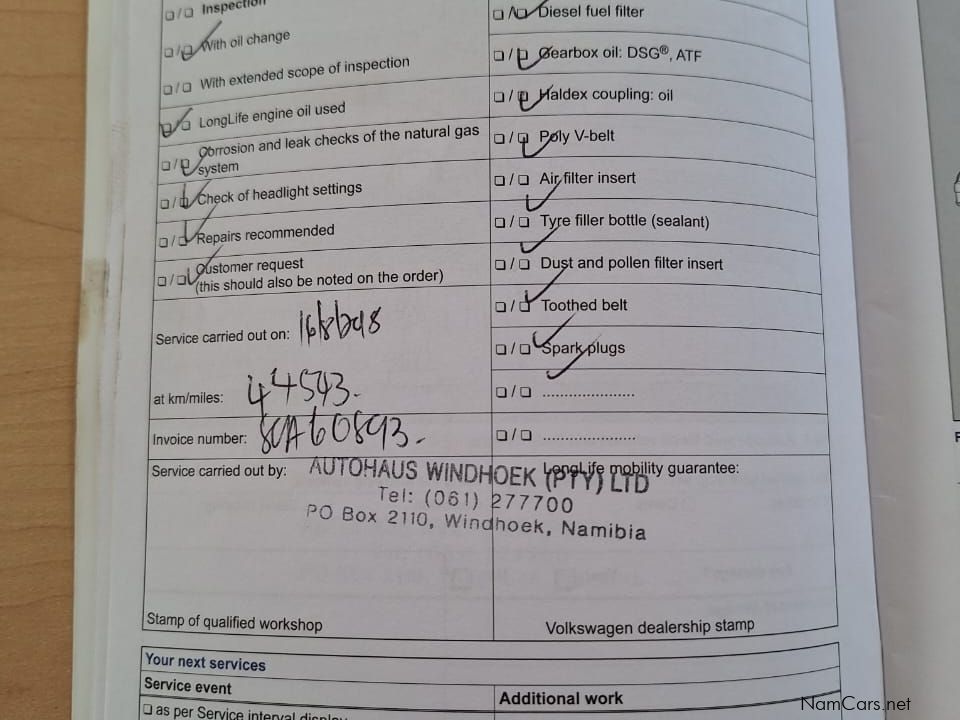 ❏ / ❏ Inspection
❏ / ❏ With oil change
❏ / ❏ With extended scope of inspection
❏ / ❏ LongLife engine oil used
❏ / ❏ Corrosion and leak checks of the natural gas
system
❏ / ❏ Check of headlight settings
❏ / ❏ Repairs recommended
❏ / ❏ Customer request
(this should also be noted on the order)
Service carried out on:
at km/miles: 44543.
Invoice number:
❏ / ❏ Diesel fuel filter
❏ / ❏ Gearbox oil: DSG®, ATF
❏ / ❏ Haldex coupling: oil
❏ / ❏ Poly V-belt
❏ / ❏ Air filter insert
❏ / ❏ Tyre filler bottle (sealant)
❏ / ❏ Dust and pollen filter insert
❏ / ❏ Toothed belt
❏ / ❏ Spark plugs
❏ / ❏ .....................
❏ / ❏ .....................
Service carried out by:
LongLife mobility guarantee:
AUTOHAUS WINDHOEK (PTY) LTD
Tel: (061) 277700
PO Box 2110, Windhoek, Namibia
Stamp of qualified workshop
Volkswagen dealership stamp
Your next services
Service event
Additional work
❏ as per Service interval display
NamCars.net